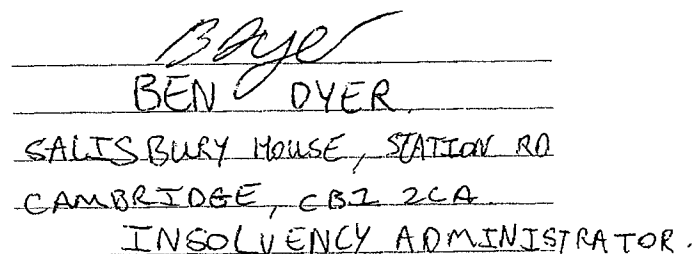 B Dyer
BEN DYER.
SALISBURY HOUSE, STATION RD
CAMBRIDGE, CB1 2LA
INSOLVENCY ADMINISTRATOR.